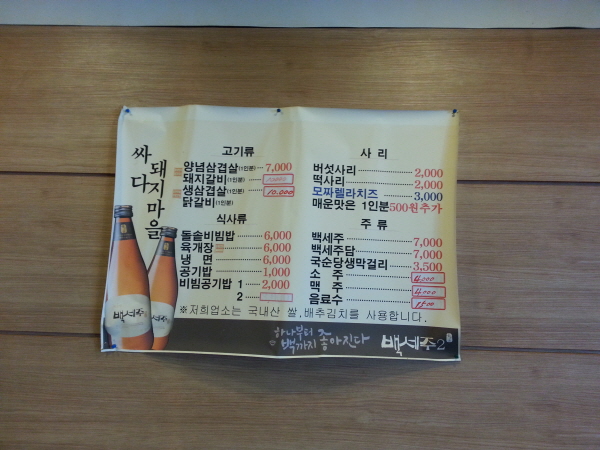 싸다
돼지마을
고기류
양념삼겹살(1인분) 7,000
돼지갈비(1인분)
생삼겹살(1인분) 10.000
닭갈비(1인분)
식사류
돌솥비빔밥 6,000
육개장 6,000
냉면 6,000
공기밥 1,000
비빔공기밥 1 2,000
2
사리
버섯사리 2,000
떡사리 2,000
모짜렐라치즈 3,000
매운맛은 1인분500원추가
주류
백세주 7,000
백세주담 7,000
국순당생막걸리 3,500
소주 4,000
맥주 4,000
음료수 1500
※저희업소는 국내산 쌀,배추김치를 사용합니다.
하나부터
백까지 좋아진다
백세주2
백세주
백세주